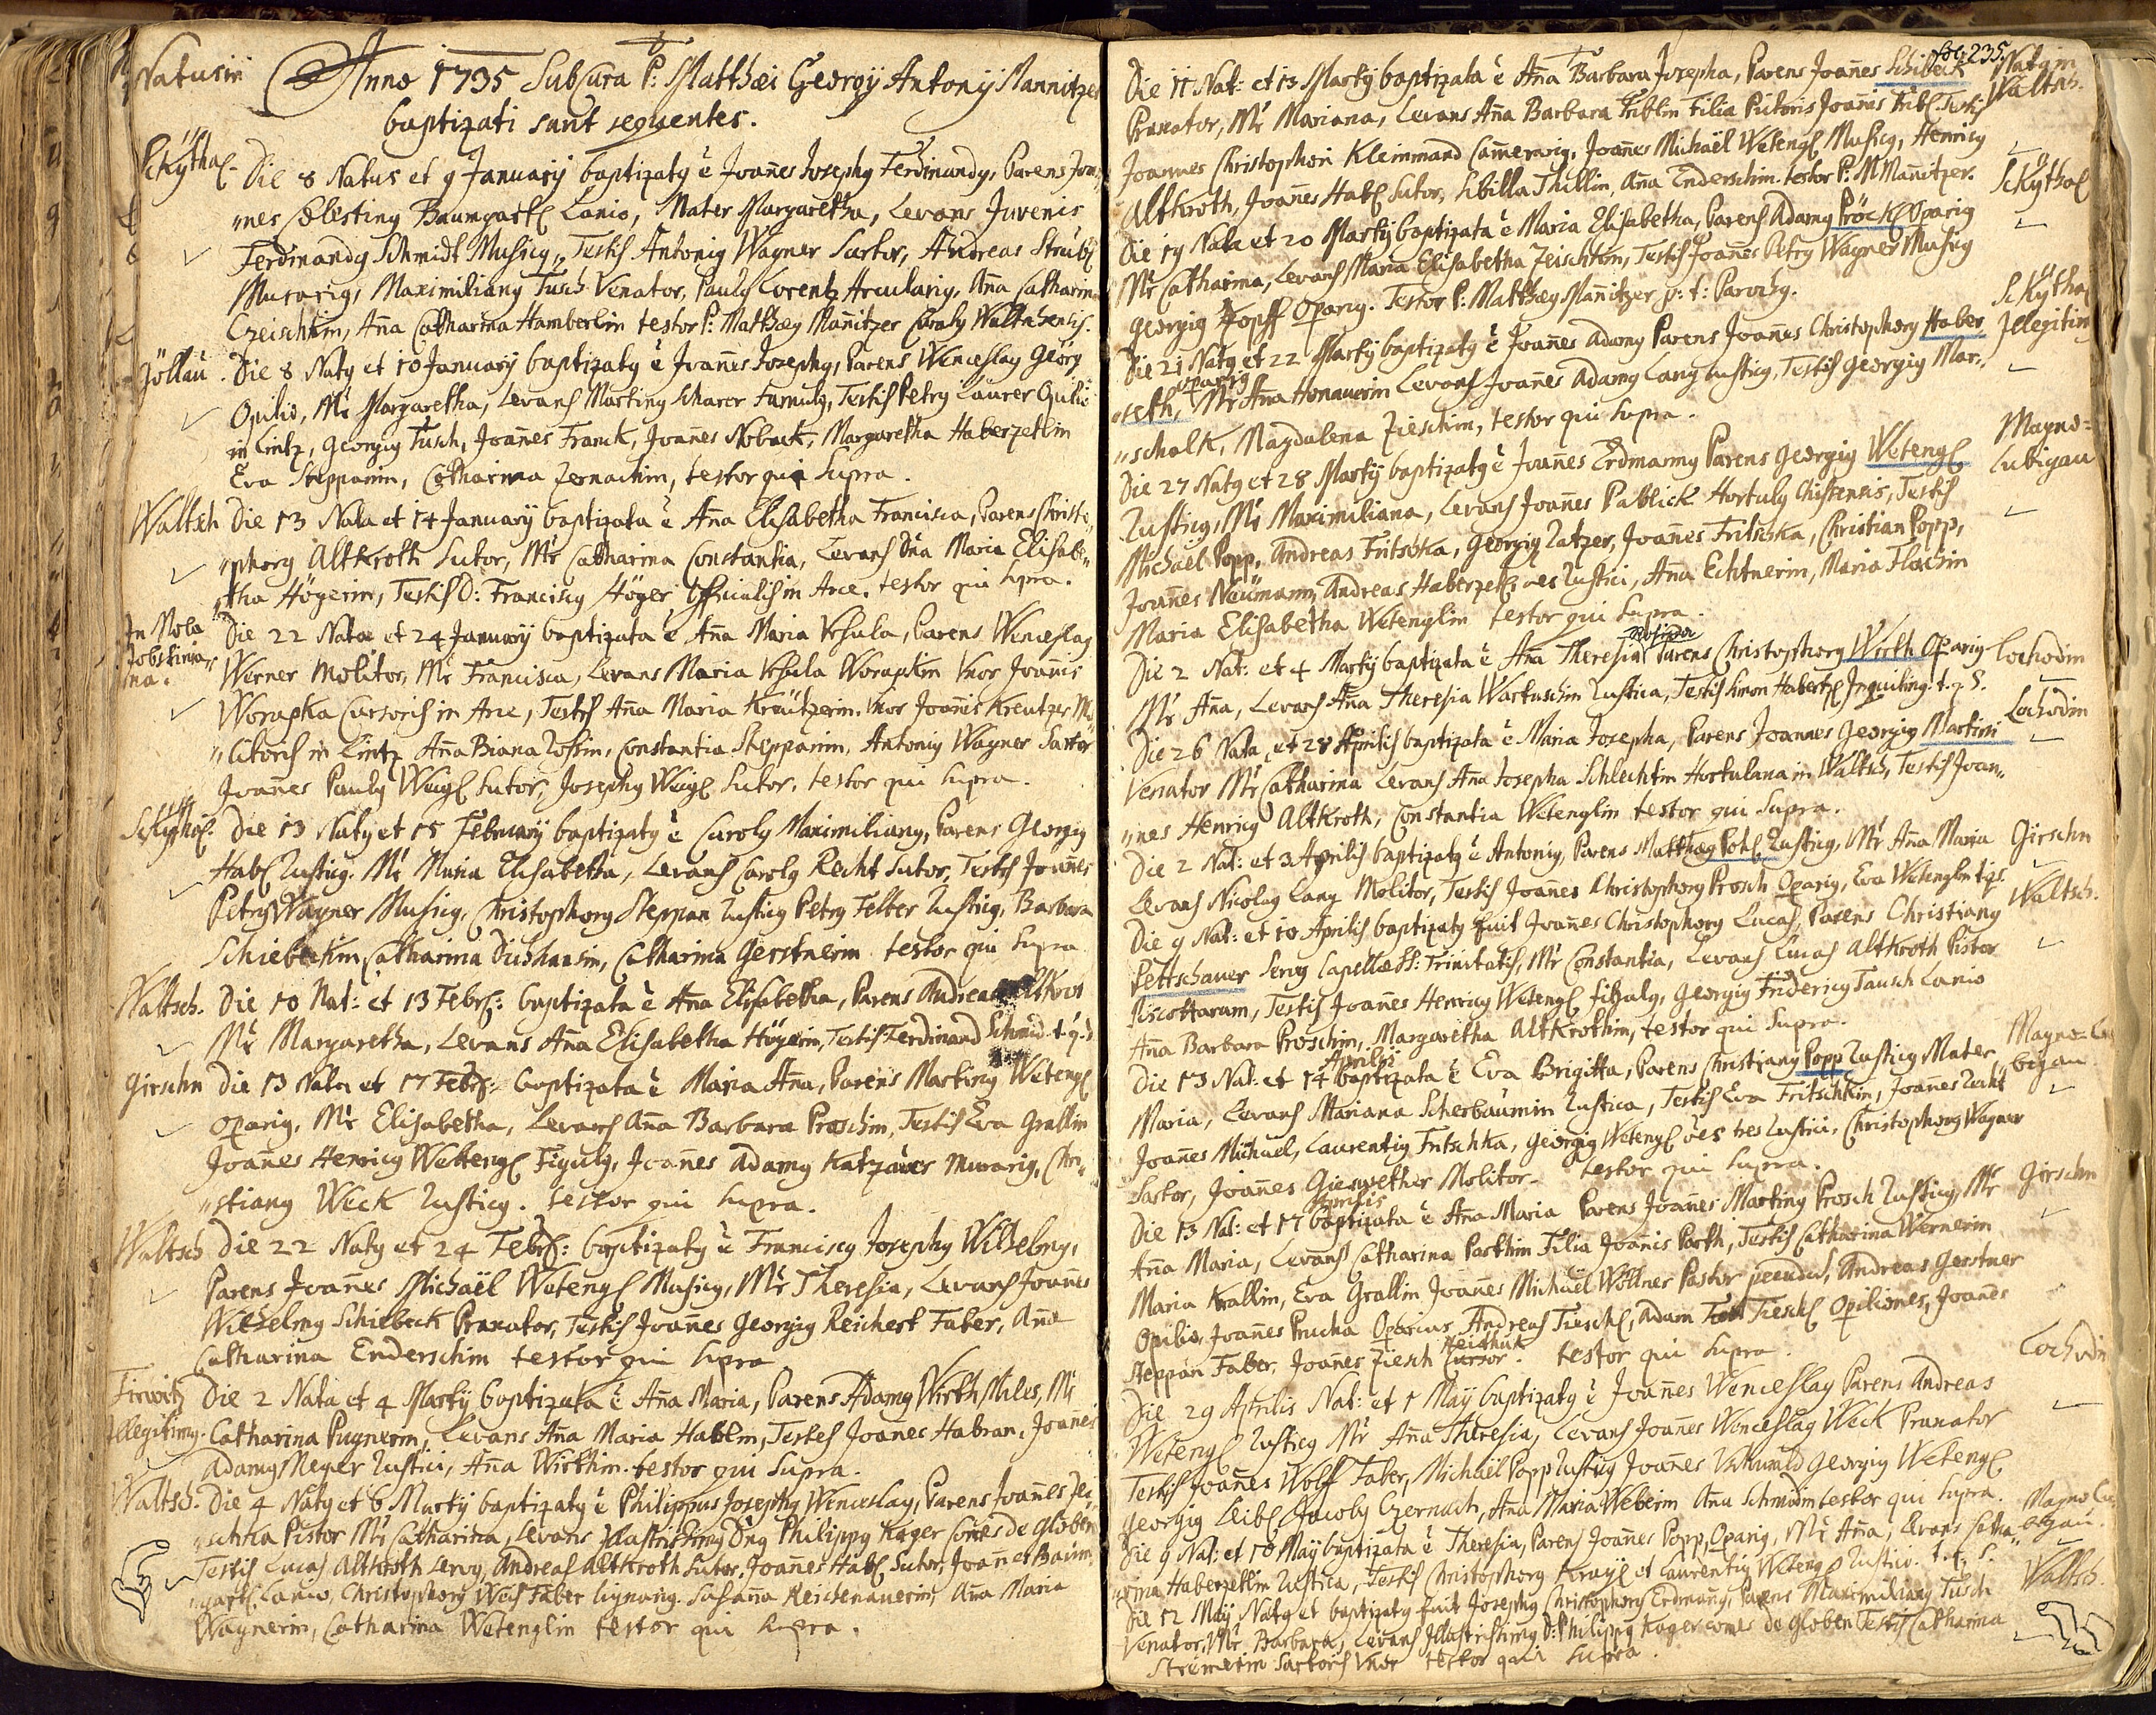 Natus in
Anno 1735 Sub Cura P: Matthæi Georgÿ Antonÿ Mannitzer
baptizati sunt sequentes.
Skÿthal. Die 8 Natus et 9 Januarÿ baptizatq ē Joañes Josephq Ferdinandq, Parens Joan„
„nes Cœlestinq Baumgartl Lanio, Mater Margaretha, Levans Juvenis
Ferdinandq Schmidt Musicq, Testes Antoniq Wagner Sartor, Andreas Straubl
Murariq, Maximilianq Tusch Venator, Paulq Lorentz Arculariq, Aña Catharina
Czeischkin, Aña Catharina Hamberlin testor P: Matthæq Mañitzer Curatq Waltschensis.
Jöllau. Die 8 Natq et 10 Januarÿ baptizatq ē Joañes Josephq, Parens Wenceslaq Geörg
Opilio, Mr̄ Margaretha, Levans Martinq Scharer Famulq, Testes Petrq Laurer Opilio
in Lintz, Georgiq Tusch, Joañes Franck, Joañes Noback, Margaretha Haberzetlin
Eva Steppanin, Catharina Zernachin, testor qui Supra.
Waltsch Die 13 Nata et 14 Januarÿ baptizata ē Aña Elisabetha Francisca, Parens Christo„
„phorq Altkroth Sutor, Mr̄ Catharina Constantia, Levans Dña Maria Elisabe„
„tha Högerin, Testes D: Franciscq Höger Officialis in Arce. testor qui supra.
In Mola Die 22 Nata et 24 Januarÿ baptizata ē Aña Maria Ursula, Parens Wenceslaq
Werner Molitor, Mr̄ Francisca, Levans Maria Ursula Worapkin Uxor Joañis
Worapka Cursoris in Arce, Testes Aña Maria Kreützerin Uxor Joañis Kreutzer Mo„
„litoris in Lintz Aña Biana Rossin, Constantia Steppanin, Antoniq Wagner Sartor
Joañes Paulq Weigl Sutor, Josephq Weigl Sutor, testor qui supra.
Skÿthal. Die 13 Natq et 15 Februarÿ baptizatq ē Carolq Maximilianq, Parens Georgiq
Habl Rusticq. Mr̄ Maria Elisabetha, Levans Carolq Recht Sutor, Testes Joañes
Petrq Wagner Musicq, Christophorq Steppan Rusticq Petrq Felber Rusticq, Barbara
Schiebeckin, Catharina Dubhansin, Catharina Gerstnerin testor qui Supra
Waltsch. Die 10 Nat: et 13 Febr: baptizata ē Aña Elisabetha, Parens Andreas Altkrot
Mr̄ Margaretha, Levans Aña Elisabetha Högerin, Testes Ferdinand Schmid t. q. S
Girschn Die 13 Nata et 17 Febr: baptizata ē Maria Aña, Parens Martinq Wetengl
Opariq, Mr̄ Elisabetha, Levans Aña Barbara Proschin, Testes Eva Grallin
Joañes Henricq Wetengl Figulq, Joañes Adamq Katzauer Murariq, Chri„
„stianq Weck Rusticq. testor qui supra.
Waltsch Die 22 Natq et 24 Febr: baptizatq ē Franciscq Josephq Wilhelmq,
Parens Joañes Michaël Wetengl Musicq, Mr̄ Theresia, Levans Joañes
Wilhelmq Schiebeck Pranator, Testes Joañes Georgiq Reichert Faber, Aña
Catharina Enderschin testor qui supra
Firwitz Die 2 Nata et 4 Martÿ baptizata ē Aña Maria, Parens Adamq Wirth Miles, Mr̄
Illegitimq. Catharina Pugnerin, Levans Aña Maria Hablin, Testes Joañes Habran, Joañes
Adamq Meyer Rustici, Aña Wirthin. testor qui Supra.
Waltsch. Die 4 Natq et 6 Martÿ baptizatq ē Philippus Josephq Wenceslaq, Parens Joañes
Pistor Mr̄ Catharina, Levans Illustrissimq Dñq Philippq Kager Comes de Globen
Testes Lucas Altkroth Servq, Andreas Altkroth Sutor. Joañes Habl Sutor, Joañes Baum„
„gartl Lanio, Christophorq Weis Faber lignariq. Susaña Reichenauerin, Aña Maria
Wagnerin, Catharina Wetenglin testor qui supra.
fol: 235.
Natq in
Die 11 Nat: et 13 Martÿ baptizata ē Aña Barbara Josepha, Parens Joañes Schibeck Waltsch.
Pranator, Mr̄ Mariana, Levans Aña Barbara Triblin Filia Pictoris Joañis Tribl. Testes
Joannes Christophori Kleinmand Camerariq, Joañes Michaël Wetengl Musicq, Henricq
Altkroth, Joañes Habl Sutor, Sibilla Thillin, Aña Enderschin. testor P: M Mañitzer.
Die 19 Nata et 20 Martÿ baptizata ē Maria Elisabetha, Parens Adamq Pröckl Opariq Skÿthal
Mr̄ Catharina, Levans Maria Elisabetha Zeischkin, Testes Joañes Petrq Wagner Musicq
Georgiq Hopff Opariq. Testor P: Matthæq Mañitzer p: t: Parochq.
Die 21 Natq et 22 Martÿ baptizatq ē Joañes Adamq Parens Joañes Christophorq Haber„ Skÿthal Illegitim
„seth, Opariq Mr̄ Aña Honauerin Levans Joañes Adamq Lang Rusticq, Testes Georgiq Mar„
„schalk, Magdalena Zieschin, testor qui supra.
Die 27 Natq et 28 Martÿ baptizatq ē Joañes Erdmannq Parens Georgiq Wetengl Magno=
Rusticq, Mr̄ Maximiliana, Levans Joañes Pablick Hortulq Chissensis, Testes Lubigau
Michaël Popp, Andreas Fritschka, Georgiq Ratzer, Joañes Fritschka, Christian Popp,
Joañes Neümann, Andreas Haberzetl, oẽs Rustici, Aña Echtnerin, Maria Flaschin
Maria Elisabetha Wetenglin testor qui Supra.
Die 2 Nat: et 4 Martÿ baptizata ē Aña Theresia Parens Christophorq Wirth Opariq Lochodin
Mr̄ Aña, Levans Aña Theresia Wartuschin Rustica, Testes Simon Habertzl Inquilinq. t. q. S.
Die 26 Nata et 28 Aprilis baptizata ē Maria Josepha, Parens Joannes Georgiq Martini Lochodin
Venator Mr̄ Catharina Levans Aña Josepha Schlechtin Hortulana in Waltsch, Testes Joan„
„nes Henricq Altkroth, Constantia Wetenglin testor qui supra.
Die 2 Nat: et 3 Aprilis baptizatq ē Antoniq, Parens Matthæq Pohl Rusticq, Mr̄ Aña Maria Girschn
Levans Nicolaq Lang Molitor, Testes Joañes Christophorq Prosch Opariq, Eva Wetenglin t. q. S.
Die 9 Nat: et 10 Aprilis baptizatq fuit Joañes Christophorq Lucas, Parens Christianq Waltsch.
Pettschauer Servq Capellæ SS: Trinitatis, Mr̄ Constantia, Levans Lucas Altkroth Pistor
Piscottarum, Testes Joañes Henricq Wetengl figulq, Georgiq Fridericq Tausch Lanio
Aña Barbara Proschin, Margaretha Altkrothin, testor qui supra.
Die 13 Nat: et 14 Aprilis baptizata ē Eva Brigitta, Parens Christianq Popp Rusticq Mater Magno=Lu
Maria, Levans Mariana Scherbaumin Rustica, Testes Eva Fritschkin, Joañes Recht bigau
Joañes Michael, Laurentiq Fritschka, Georgiq Wetengl oẽs tres Rustici, Christophorq Wagner
Sartor, Joañes Giesswether Molitor. testor qui supra.
Die 13 Nat: et 17 Aprilis baptizata ē Aña Maria Parens Joañes Martinq Prosch Rusticq, Mr̄ Girschn
Aña Maria, Levans Catharina Parthin Filia Joañis Parth, Testes Catharina Wernerin
Maria Krallin, Eva Grallin Joañes Michaël Wöllner Pastor pecudis, Andreas Gerstner
Opilio, Joañes Prucha Oparius Andreas Tieschl, Adam Tieschl Opiliones, Joañes
Steppan Faber, Joañes Ziesch Cursor. testor qui supra.
Die 29 Aprilis Nat: et 1 Maÿ baptizatq ē Joañes Wenceslaq Parens Andreas Lochodin
Wetengl Rusticq Mr̄ Aña Theresia, Levans Joañes Wenceslaq Weck Pranator
Testes Joañes Wolff Faber, Michaël Popp Rusticq Joañes Georgiq Wetengl
Georgiq Leibl Jacobq Czernach, Aña Maria Weberin Aña Schmidin testor qui supra.
Die 9 Nat: et 10 Maÿ baptizata ē Theresia, Parens Joañes Popp, Opariq, Mr̄ Aña, Levans Catha„ Magno Lu
„rina Haberzetlin Rustica, Testes Christophorq Krayl et Laurentiq Wetengl Rustici. t. q. S. bigau.
Die 12 Maÿ Natq et baptizatq fuit Josephq Christophorq Erdmanq, Parens Maximilianq Tusch Waltsch.
Venator, Mr̄ Barbara, Levans Illustrissimq D: Philippq Kager comes de Globen Testes Catharina
Strimerin Sartoris Uxor testor qui supra.